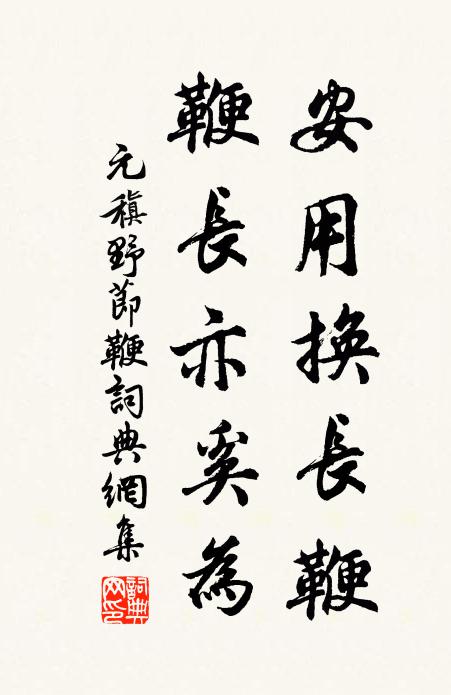 安用換長鞭
鞭長亦奚為
元稹野節鞭詞典網集
詞典网印